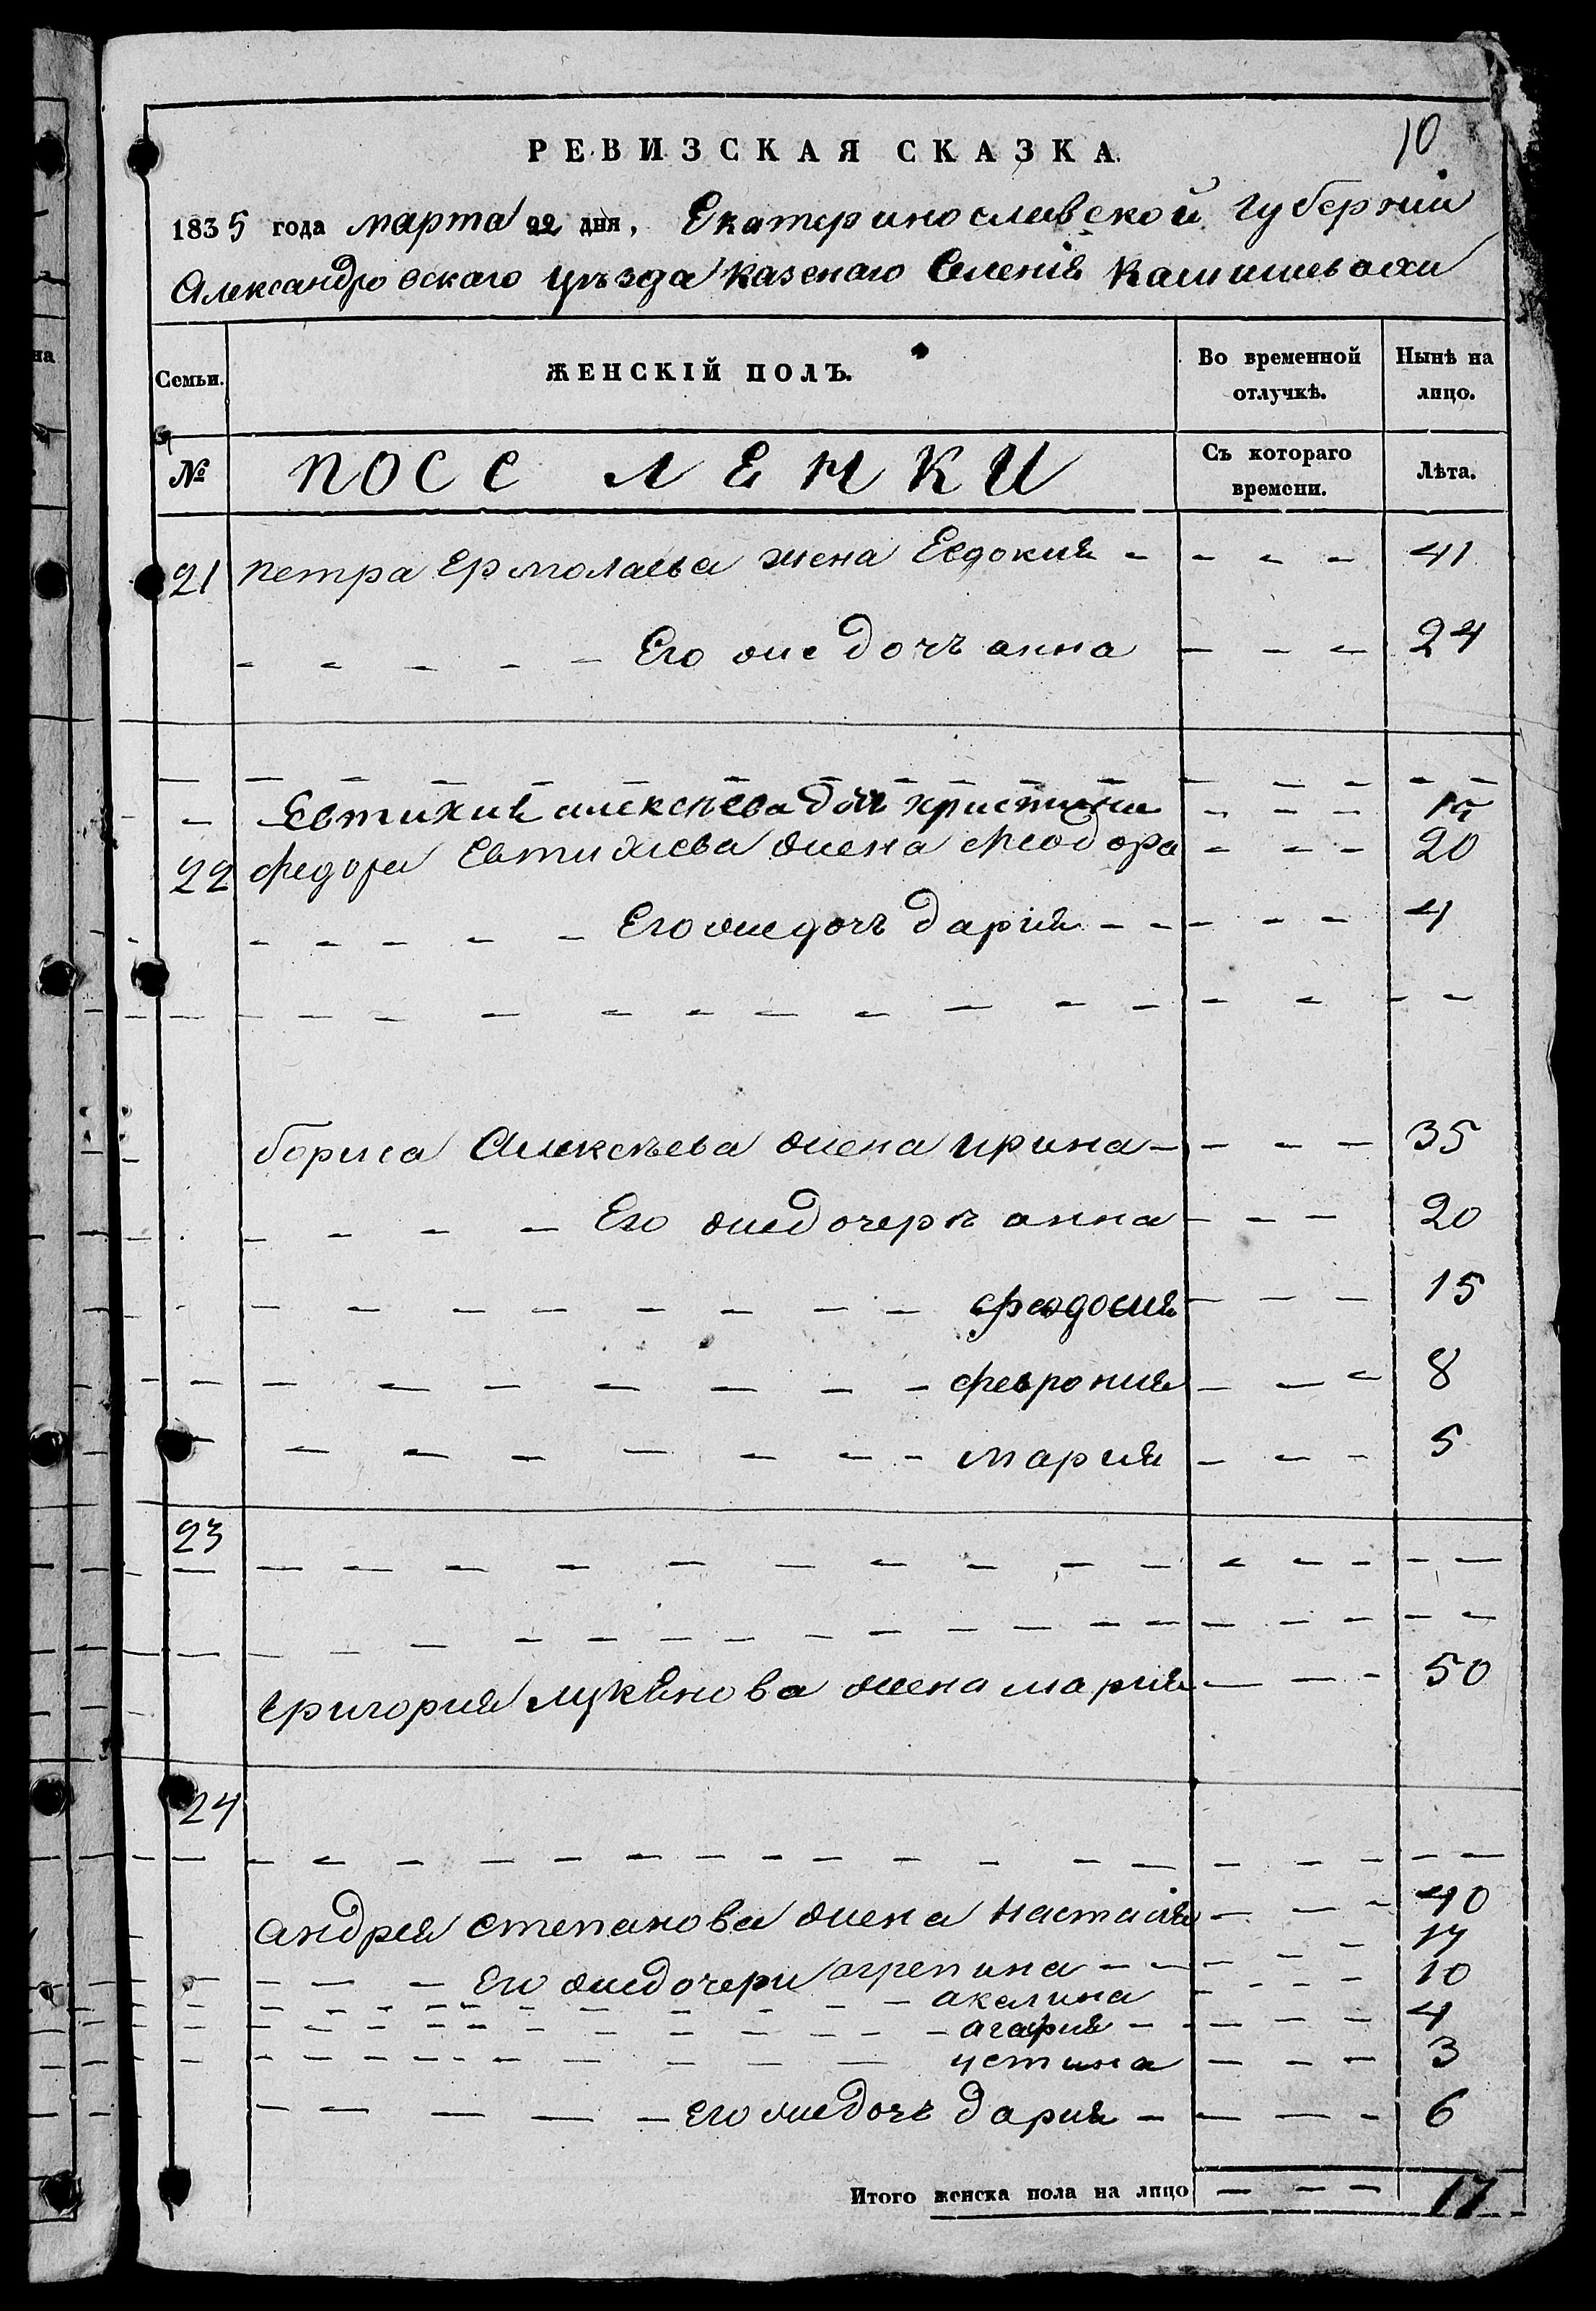 10
РЕВИЗСКАЯ СКАЗКА.
1835 года марта 22 дня, Екатеринославской губернии
Александровскаго уъзда казенаго Селения
Семьи.
ЖЕНСКІЙ ПОЛЪ.
Во временной отлучкѣ.
Нынѣ на лицо.
№
ПОССЕЛЕНКИ
Съ котораго времени.
Лѣта.
21 петра Ермолаева жена Евдокия - - - - 41
- - - - - Его же дочь анна - - - 24
- - - - - - - - - - - - - - - -
- Евтихия алексѣева дочь христина - - -
22 федора Евтихиева жена феодора - - - 20
- - - - - Его же дочь дария - - - - - 4
- - - - - - - - - - - - - - - -
бориса Алексѣева жена ирина - - - - 35
- - - - Его же дочерѣ анна - - - 20
- - - - - - - феодосия - - - 15
- - - - - - - - феврония - - - 8
- - - - - - - - мария - - - 5
23
- - - - - - - - - - - - - - - -
- - - - - - - - - - - - - - - -
григория лукянова жена мария - - - 50
24
- - - - - - - - - - - - - - - -
андрея степанова жена настасия - - - 40
- - - Его же дочери агрепина - - - - 17
- - - - - - - - - - акелина - - - 10
- - - - - - - - - - агафия - - - - - 4
- - - - - - - - - - устина - - - 3
- - - - - его же дочь дария - - - - 6
Итого женска пола на лицо - - - 17